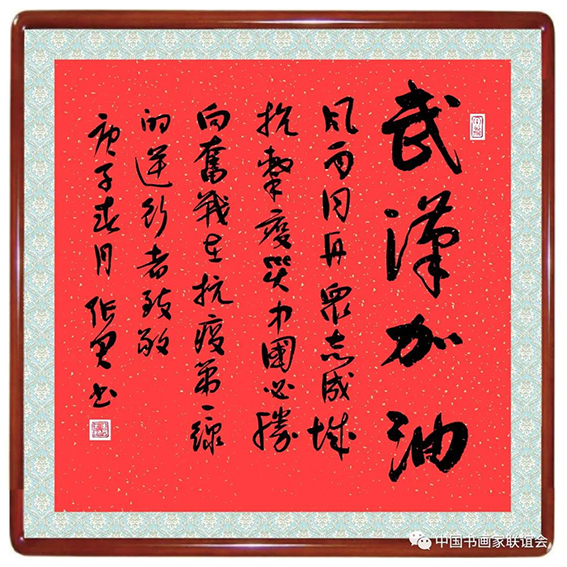 武漢加油
风雨同舟衆志成城
抗擊疫災中國必勝
向奮戰在抗疫第一線
的逆行者致敬
庚子春月 书
中国书画家联谊会